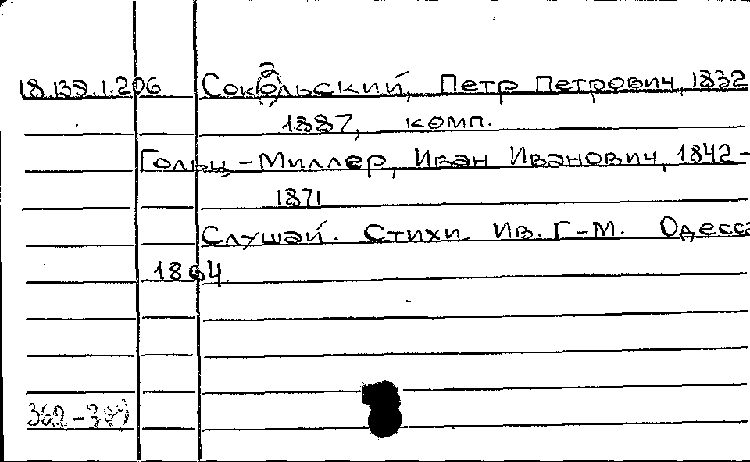 18.139.1.206 Сокальский, Петр Петрович, 1832
1887, комп.
Гольц-Миллер, Иван Иванович, 1842-
1871
Слушай. Стихи. Ив. Г-М. Одесса
1864